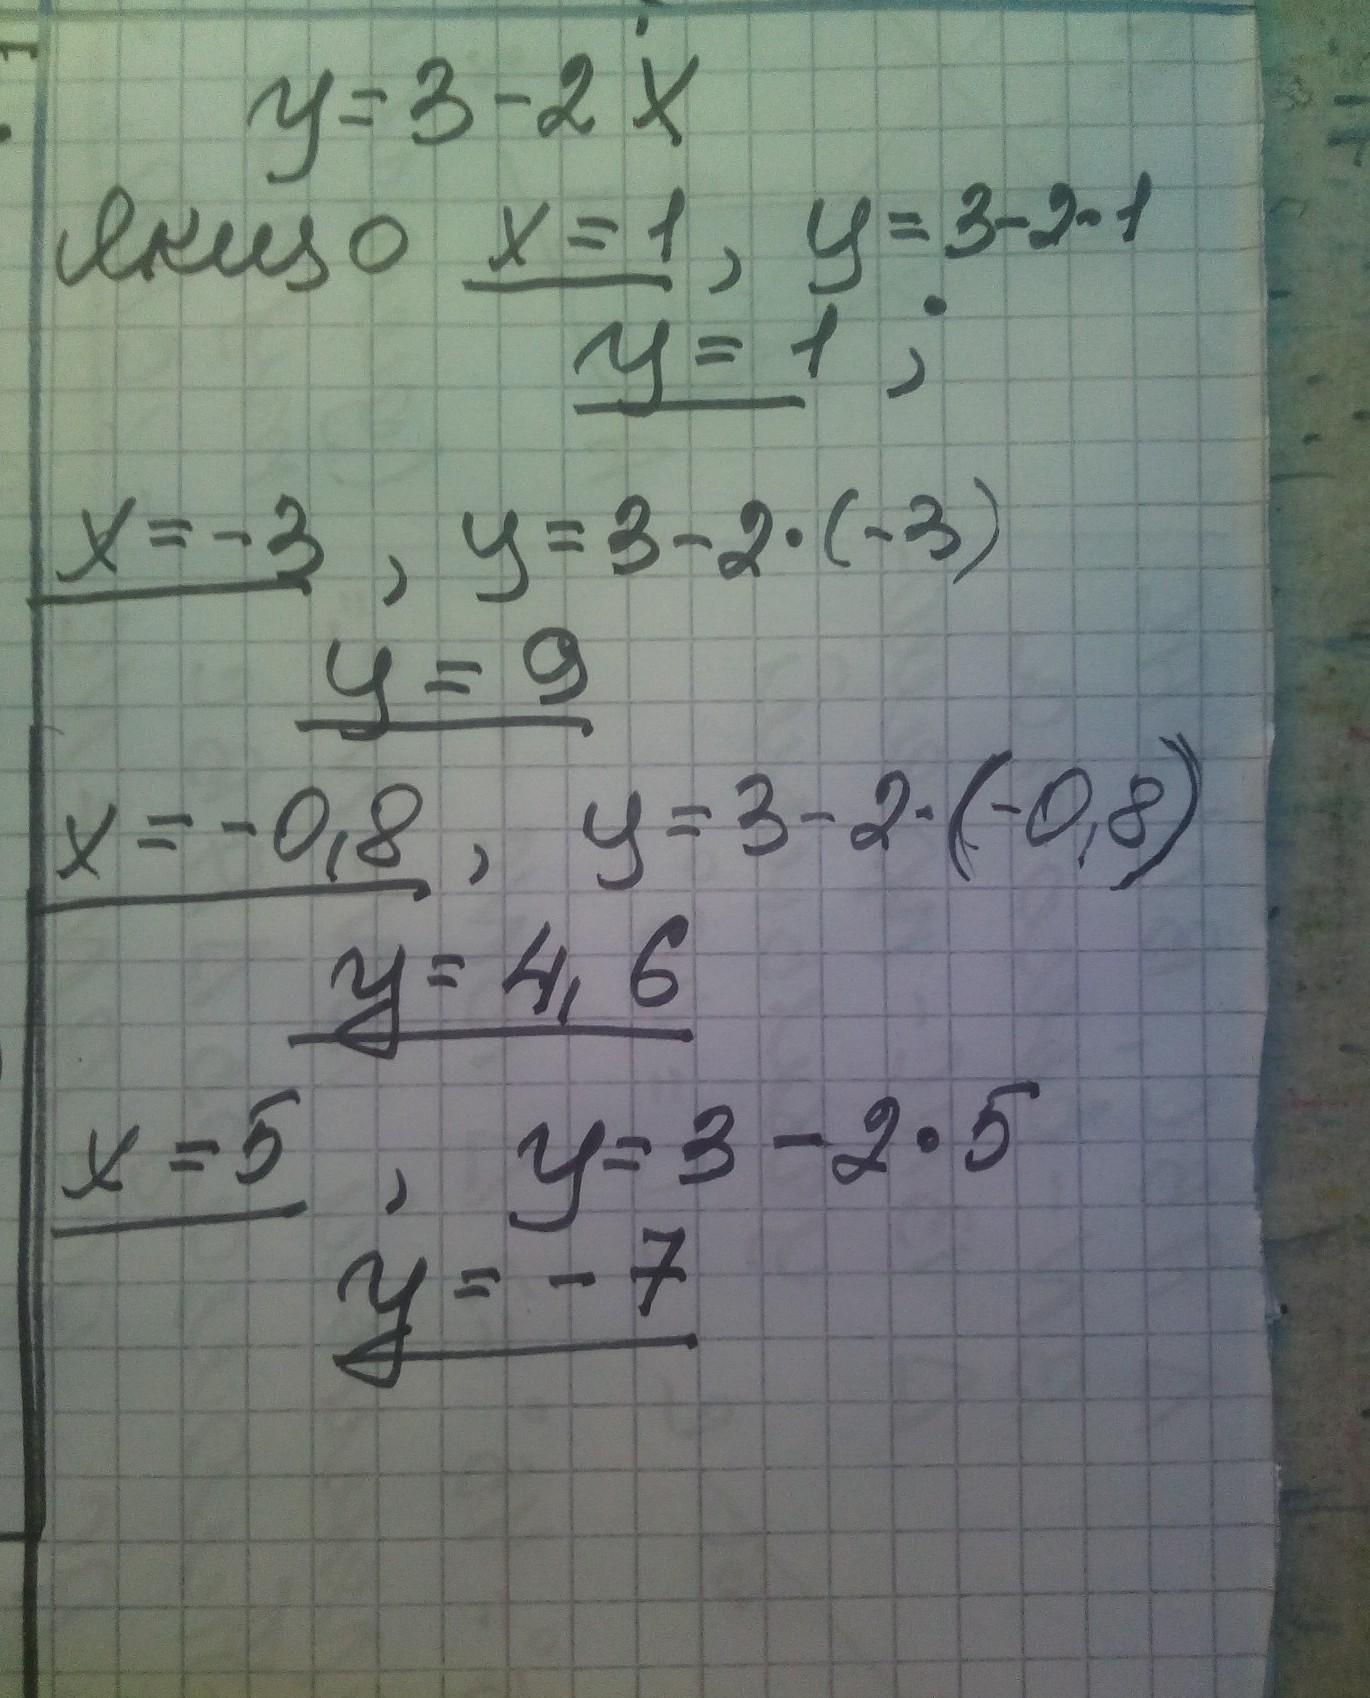 y=3-2x
Якщо x=1, y=3-2·1
y=1;
x=-3, y=3-2·(-3)
y=9
x=-0,8, y=3-2·(-0,8)
y=4,6
x=5, y=3-2·5
y=-7